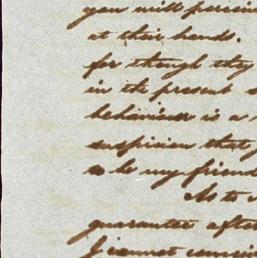 you will perceive
at their hands.
for though they
in the present
behaviour is a
suspicion that
to be my friend
As to
guarantee after
I cannot